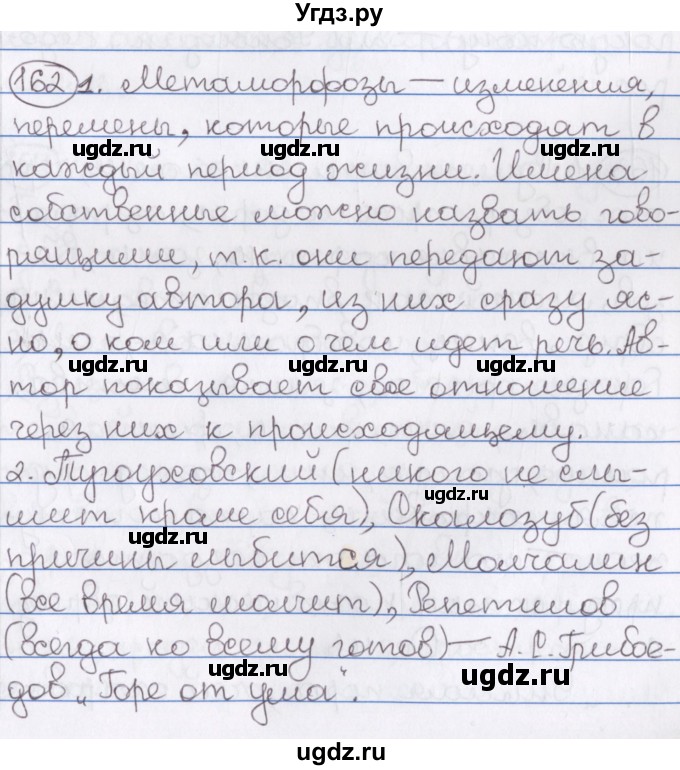 Угдз.ру
162 1. Метаморфозы — изменения,
перемены, которые происходят в
ugdz.ru ugdz.ru ugdz.ru
каждый период жизни. Имена
собственные можно назвать гово-
рящими, т.к. они передают за-
ugdz.ru ugdz.ru
думку автора, из них сразу яс-
но, о ком или о чем идет речь. Ав-
ugdz.ru ugdz.ru
тор показывает свое отношение
через них к происходящему.
2. Тугоуховский (никого не слы-
ugdz.ru
шит кроме себя), Скалозуб (без
ugdz.ru
причины лыбится), Молчалин
(все время молчит), Репетилов
ugdz.ru ugdz.ru
(всегда ко всему готов) — А. С. Грибое-
ugdz.ru ugdz.ru
дов „Горе от ума".
ugdz.ru